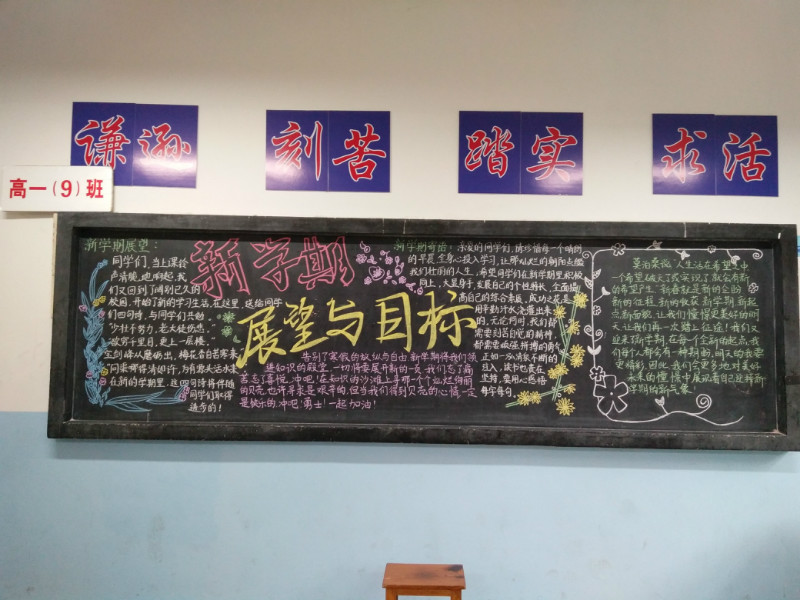 谦逊
刻苦
踏实
求活
高一(9)班
新学期
展望与目标
新学期展望:
同学们,当上课铃
声清脆地响起,我
们又回到了阔别已久的
校园,开始了新的学习生活,在这里,送给同学
们四句诗,与同学们共勉,
“少壮不努力,老大徒伤悲。”
欲穷千里目,更上一层楼。
宝剑锋从磨砺出,梅花香自苦寒来
问渠哪得清如许,为有源头活水来
在新的学期里,这四句诗将伴随
同学们取得
进步的!
告别了寒假的放纵与自由,新学期将我们领
进知识的殿堂,一切将要展开新的一页,我们忘了痛
苦忘了喜悦,冲吧!在知识的沙滩上寻那一个个灿烂绚丽
的贝壳,也许寻来是艰辛的,但当我们得到贝壳的心情一定
是快乐的,冲吧!勇士!一起加油!
新学期寄语:亲爱的同学们,请珍惜每一个晴朗
的早晨,全身心投入学习,让那灿烂的朝阳点燃
我们壮丽的人生,希望同学们在新学期里积极
向上,大显身手,发展自己的个性特长,全面提
高自己的综合素质,成功之花是
用辛勤汗水浇灌出来
的,无论何时,我们都
需要刻苦自觉的精神
都需要顽强拼搏的勇气
正如一泓清泉不断的
注入,这和也贵在
坚持,要用心感悟
每字每句。
莫泊桑说:人生活在希望之中
一个希望破灭了或实现了就会有新
的希望产生,新春就是新的企盼
新的征程,新的收获,新学期,新起
点,新面貌,让我们憧憬更美好的明
天,让我们再一次踏上征途!我们又
迎来新学期,在每一个全新的起点,我
们每个人都会有一种期盼,
更精彩,因此,我们会更多地对美好
未来的憧憬中展现着自己迎接新
学期的新气象